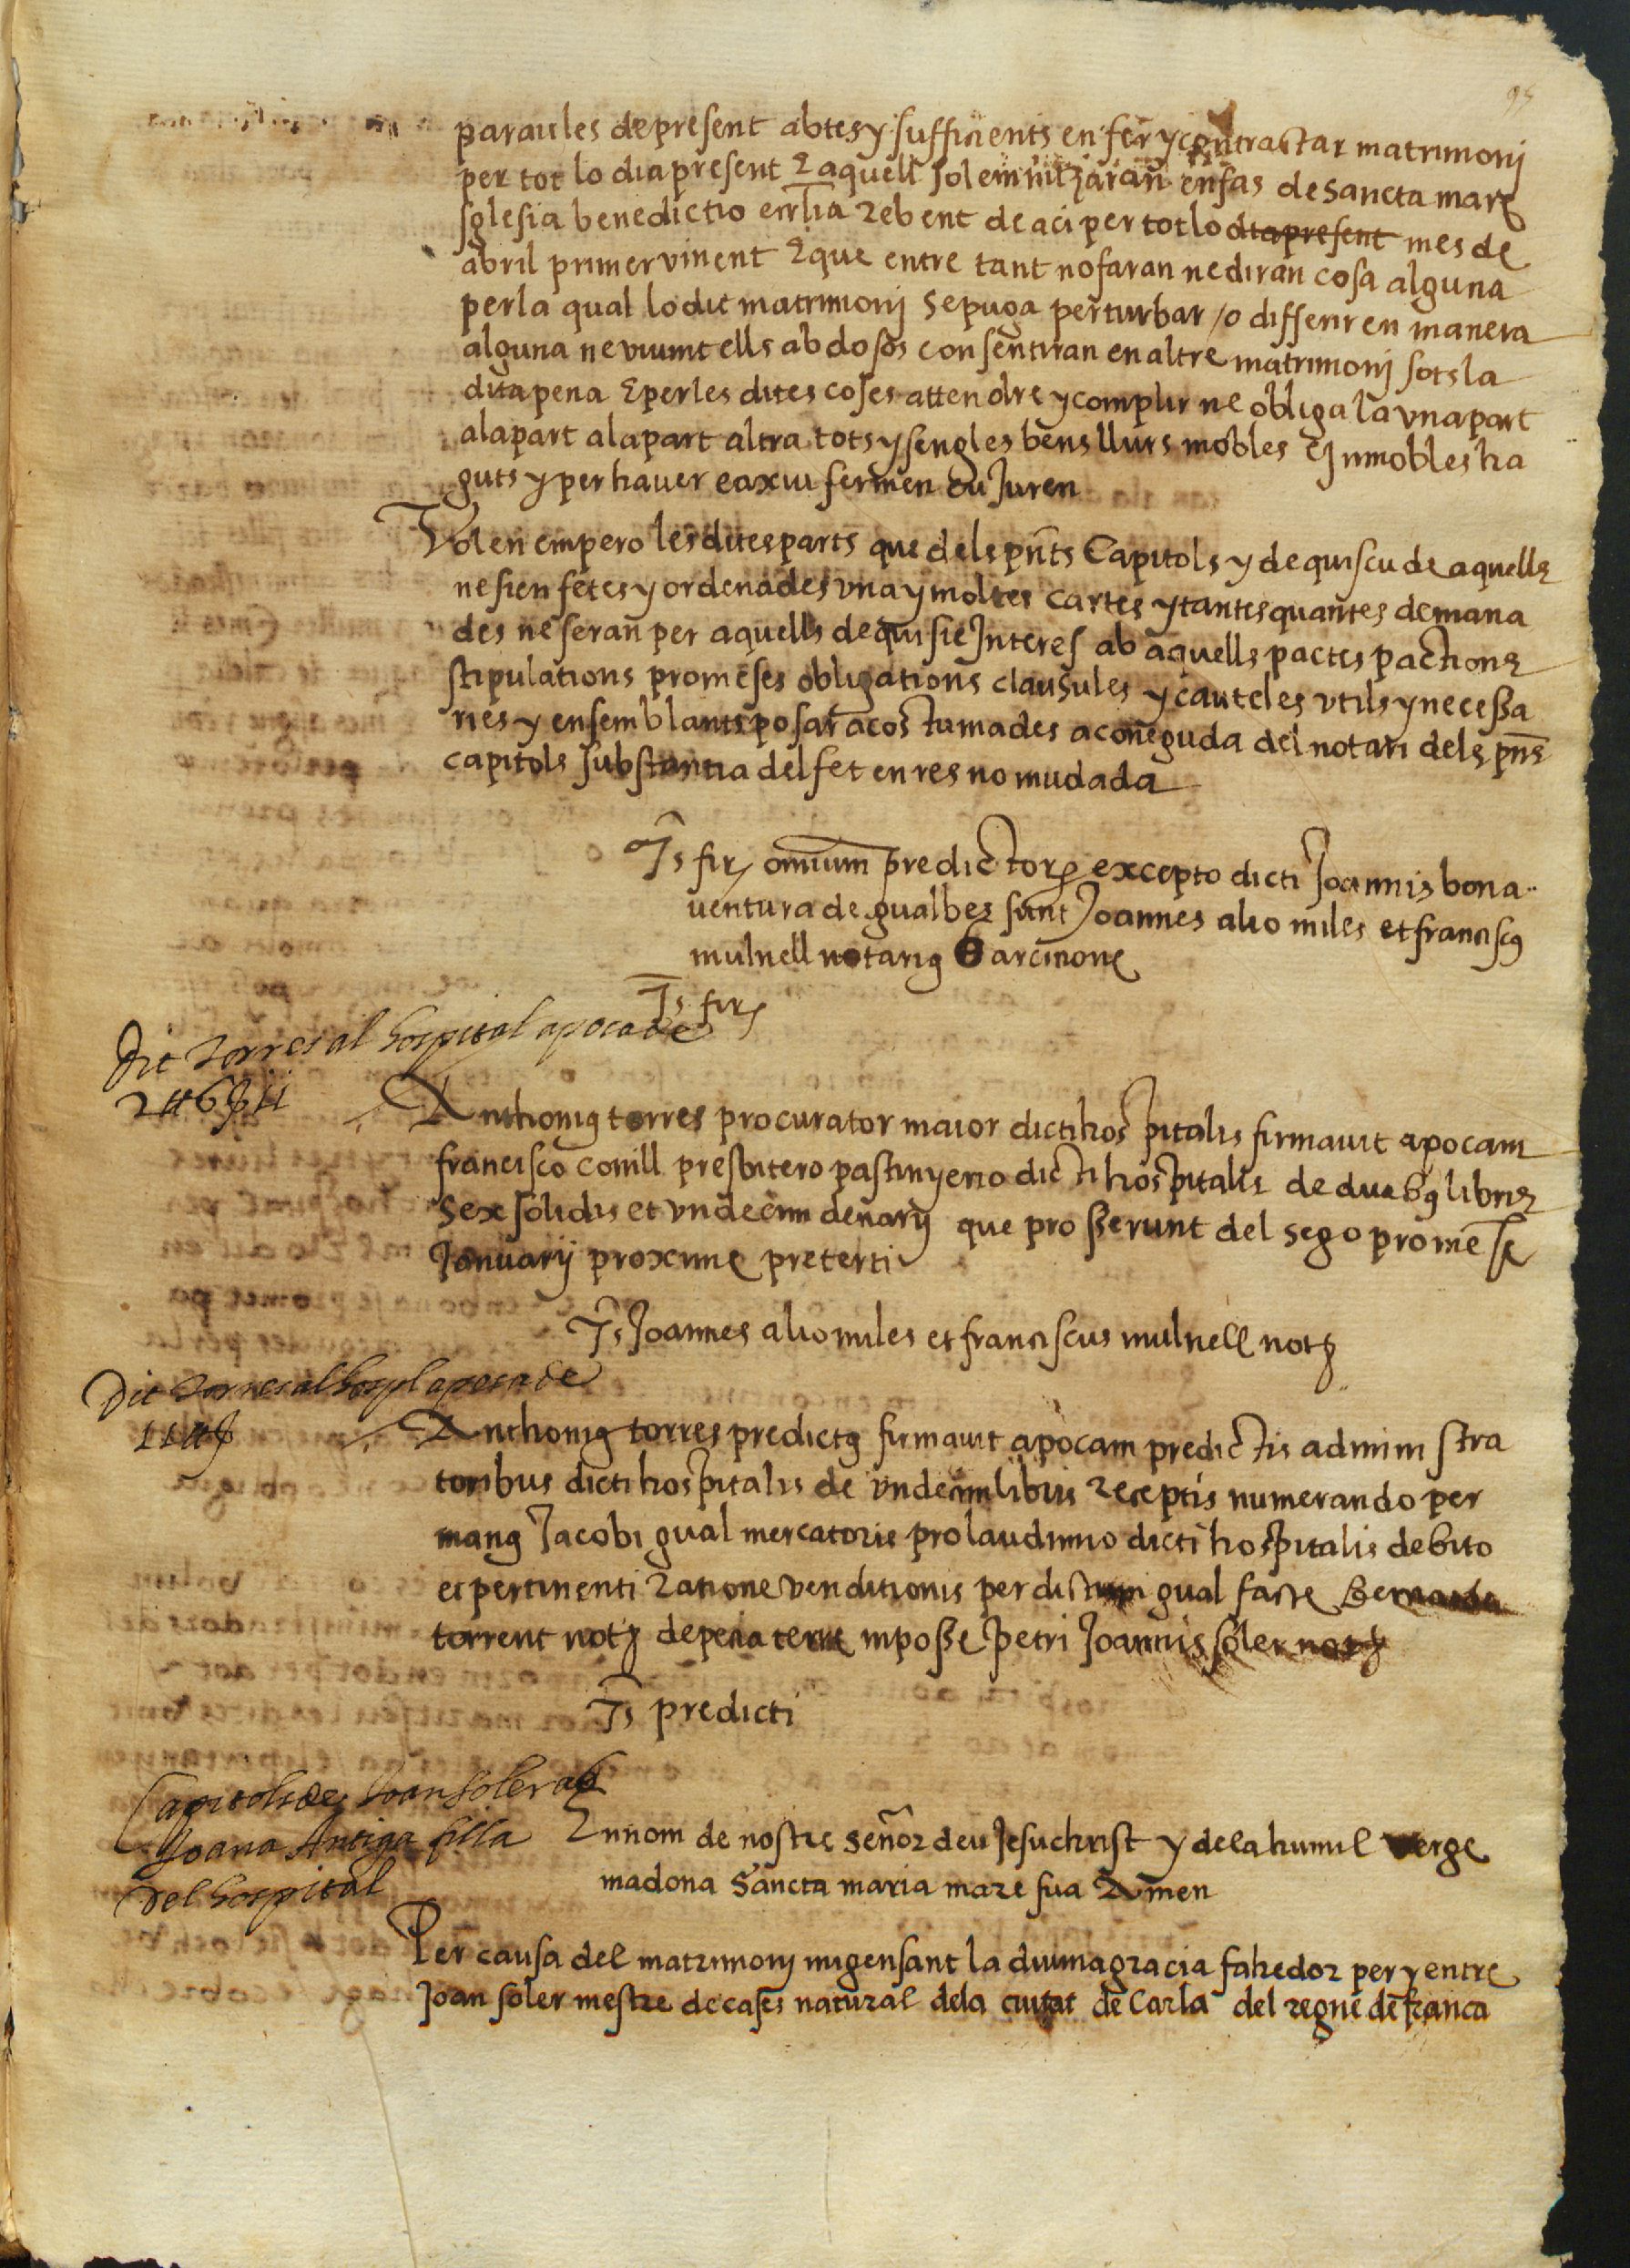 95
paraules de present abtes y sufficients en fer y contractar matrimonj
per tot lo dia present E aquell solemnitzaran en fas de sancta mare
sglesia benedictio en lia rebent de aci per tot lo dia present mes de
abril primer vinent E que entre tant no faran ne diran cosa alguna
per la qual lo dit matrimonj se puga perturbar /o differir en manera
alguna ne vivint ells abdosos consentiran en altre matrimonj sots la
dita pena E per les dites coses attendre y complir ne obliga la vna part
a la part a la part altra tots y sengles bens llurs mobles E Inmobles ha
guts y per haver e axiu fermen eu Juren
Volen empero les dites parts que dels pnts Capitols y de quiscu de aquells
ne sien fetes y ordenades vna y moltes cartes y tantes quantes demana
des ne seran per aquells de qui sie Interes ab aquells pactes pactions
stipulations promeses obligations clausules y cauteles vtils y necessa
ries y en semblants posar acostumades a coneguda del notari dels pns
capitols substantia del fet en res no mudada
Ts fir omnium predictor excepto dicti Joannis bona
ventura de gualbes sunt Joannes alio miles et franciscus
mulnell notarius Barcinone
Ts fir
Dit Torres al hospital apoca de
2 ll 6 s 11
Anthonius torres procurator maior dicti hospitalis firmavit apocam
francisco conill presbitero pastinyerio dicti hospitalis de duabus libris
sex solidis et vndecim denarij que prosserunt del sego pro mense
Januarij proxime preteriti
Ts Joannes alio miles et franciscus mulnell not
Dit Torres al hospl apoca de
11 ll s
Anthonius torres predictus firmavit apocam predictis administra
toribus dicti hospitalis de vndecim libris receptis numerando per
manus Jacobi gual mercatoris pro laudimio dicti hospitalis debito
et pertinenti ratione venditionis per dictum gual facte Bernardo
torrent not de pecia terre in posse petri Joannis soler not
Ts predicti
Capitols de Joan soler ab
Joana Antiga filla
del hospital
En nom de nostre señor deu Jesuchrist y de la humil verge
madona Sancta maria mare sua Amen
Per causa del matrimonj migensant la divina gracia fahedor per y entre
Joan soler mestre de cases natural de la ciutat de Carla del regne de franca